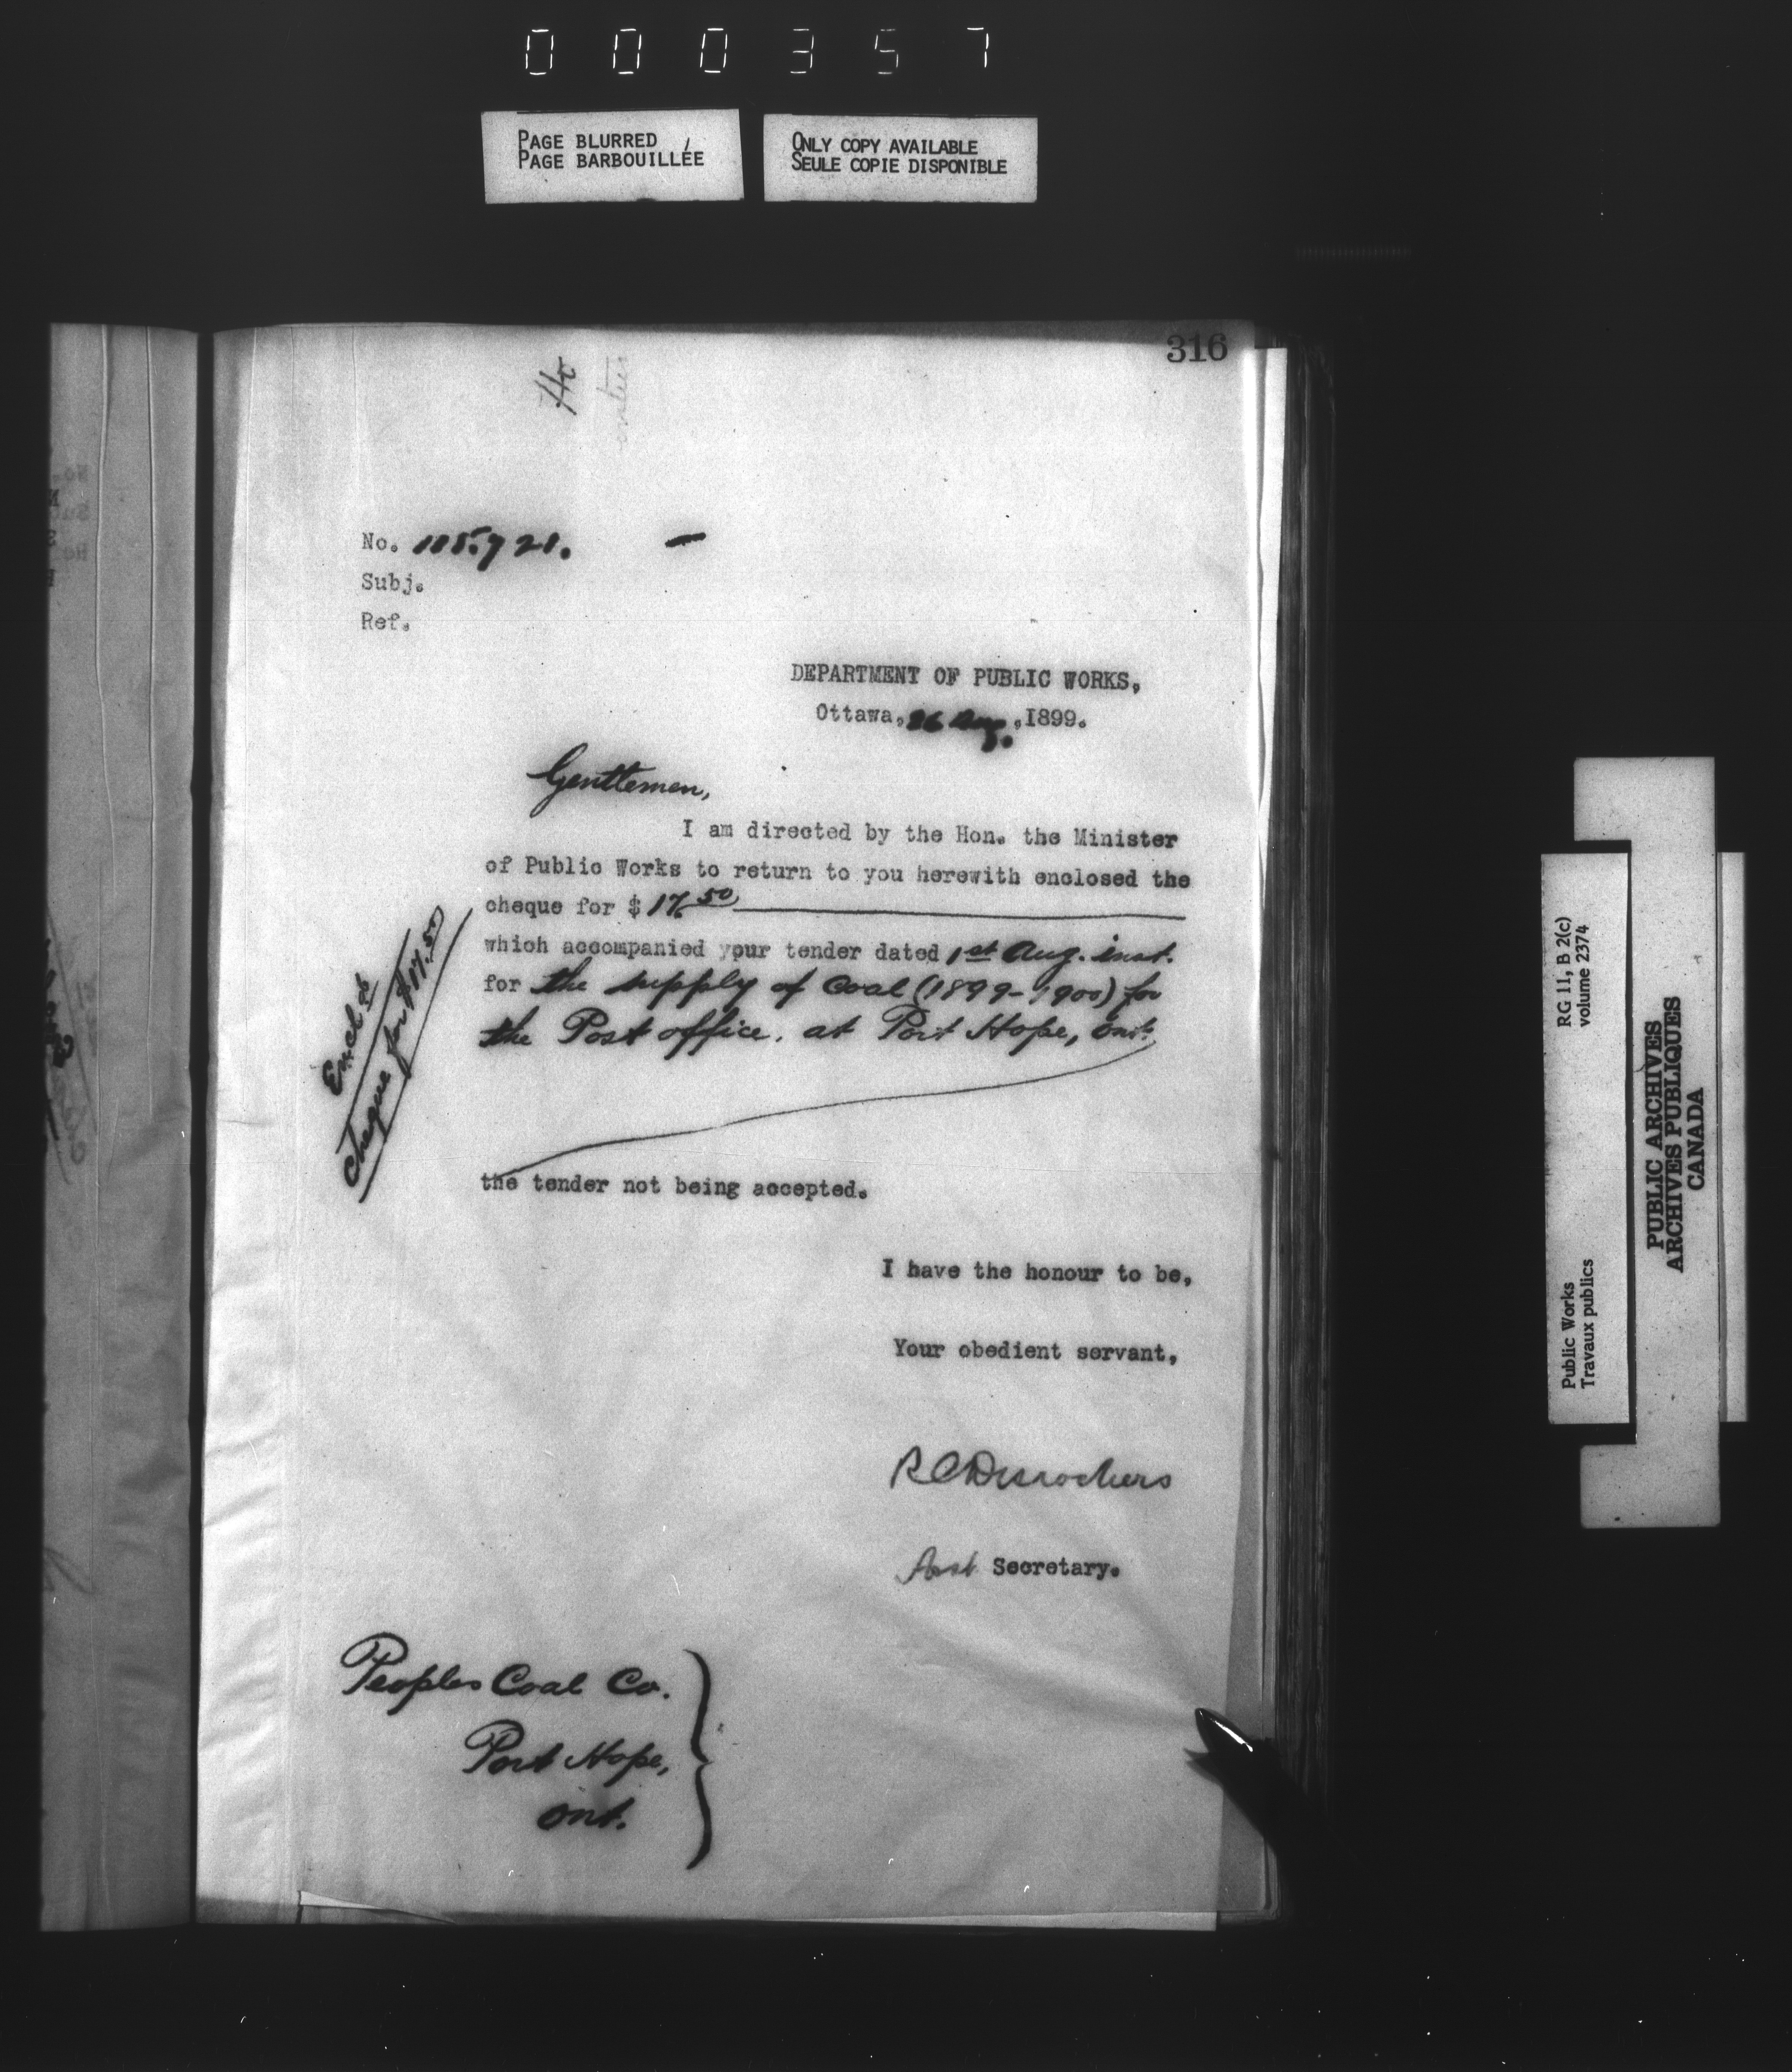 000357
PAGE BLURRED
PAGE BARBOUILLÉE
ONLY COPY AVAILABLE
SEULE COPIE DISPONIBLE
316
No. 115.721.
Subj.
Ref.
DEPARTMENT OF PUBLIC WORKS,
Ottawa, 26 Aug. ,1899.
Gentlemen,
I am directed by the Hon. the Minister
of Public Works to return to you herewith enclosed the
cheque for $ 17.50
which accompanied your tender dated 1st Aug. inst.
for the supply of Coal (1899-1900) for
the Post office, at Port Hope, Ont.
cheque for $17.50
the tender not being accepted.
I have the honour to be,
Your obedient servant,
R C Desrochers
Asst Secretary.
Peoples Coal Co.
Port Hope,
Ont.
RG 11, B 2(c)
volume 2374
Public Works
Travaux publics
PUBLIC ARCHIVES
ARCHIVES PUBLIQUES
CANADA